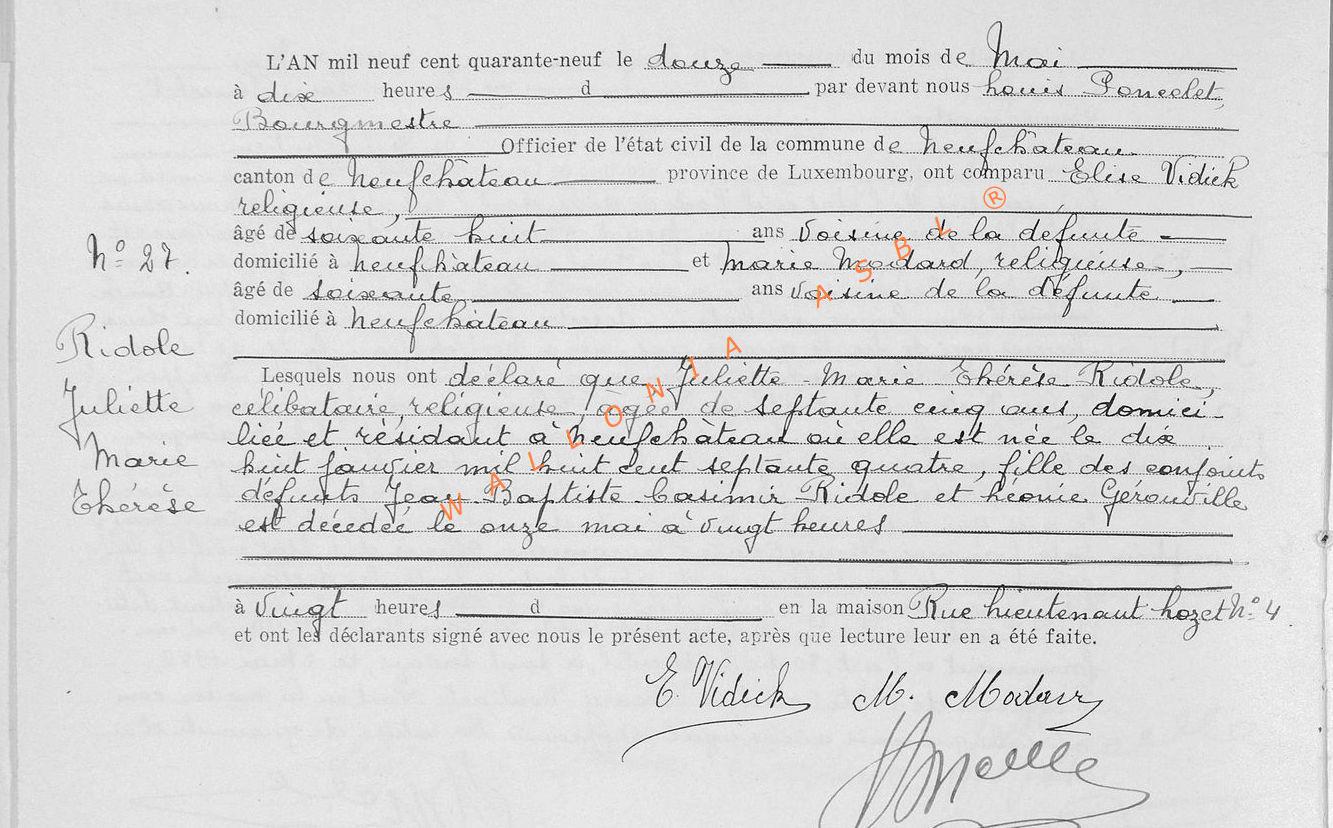 L'AN mil neuf cent quarante-neuf le douze du mois de Mai
à dix heures d par devant nous Louis Poncelet,
Bourgmestre
Officier de l'état civil de la commune de Neufchâteau
canton de Neufchâteau province de Luxembourg, ont comparu Elise Vidick
religieuse,
âgé de soixante huit ans voisine de la défunte
N° 27.
domicilié à Neufchâteau et Marie Modard, religieuse,
âgé de soixante ans voisine de la défunte
domicilié à Neufchâteau
Ridole
Juliette
Marie
Thérèse
Lesquels nous ont déclaré que Juliette-Marie Thérèse Ridole,
célibataire, religieuse, âgée de septante cinq ans, domici-
liée et résidant à Neufchâteau où elle est née le dix
huit janvier mil huit cent septante quatre, fille des conjoints
défunts Jean Baptiste Casimir Ridole et Léonie Gérouville
est décédée le onze mai à vingt heures
à vingt heures d en la maison Rue Lieutenant Lozet N° 4
et ont les déclarants signé avec nous le présent acte, après que lecture leur en a été faite.
E. Vidick M. Modard
WALLONIA ASBL ®